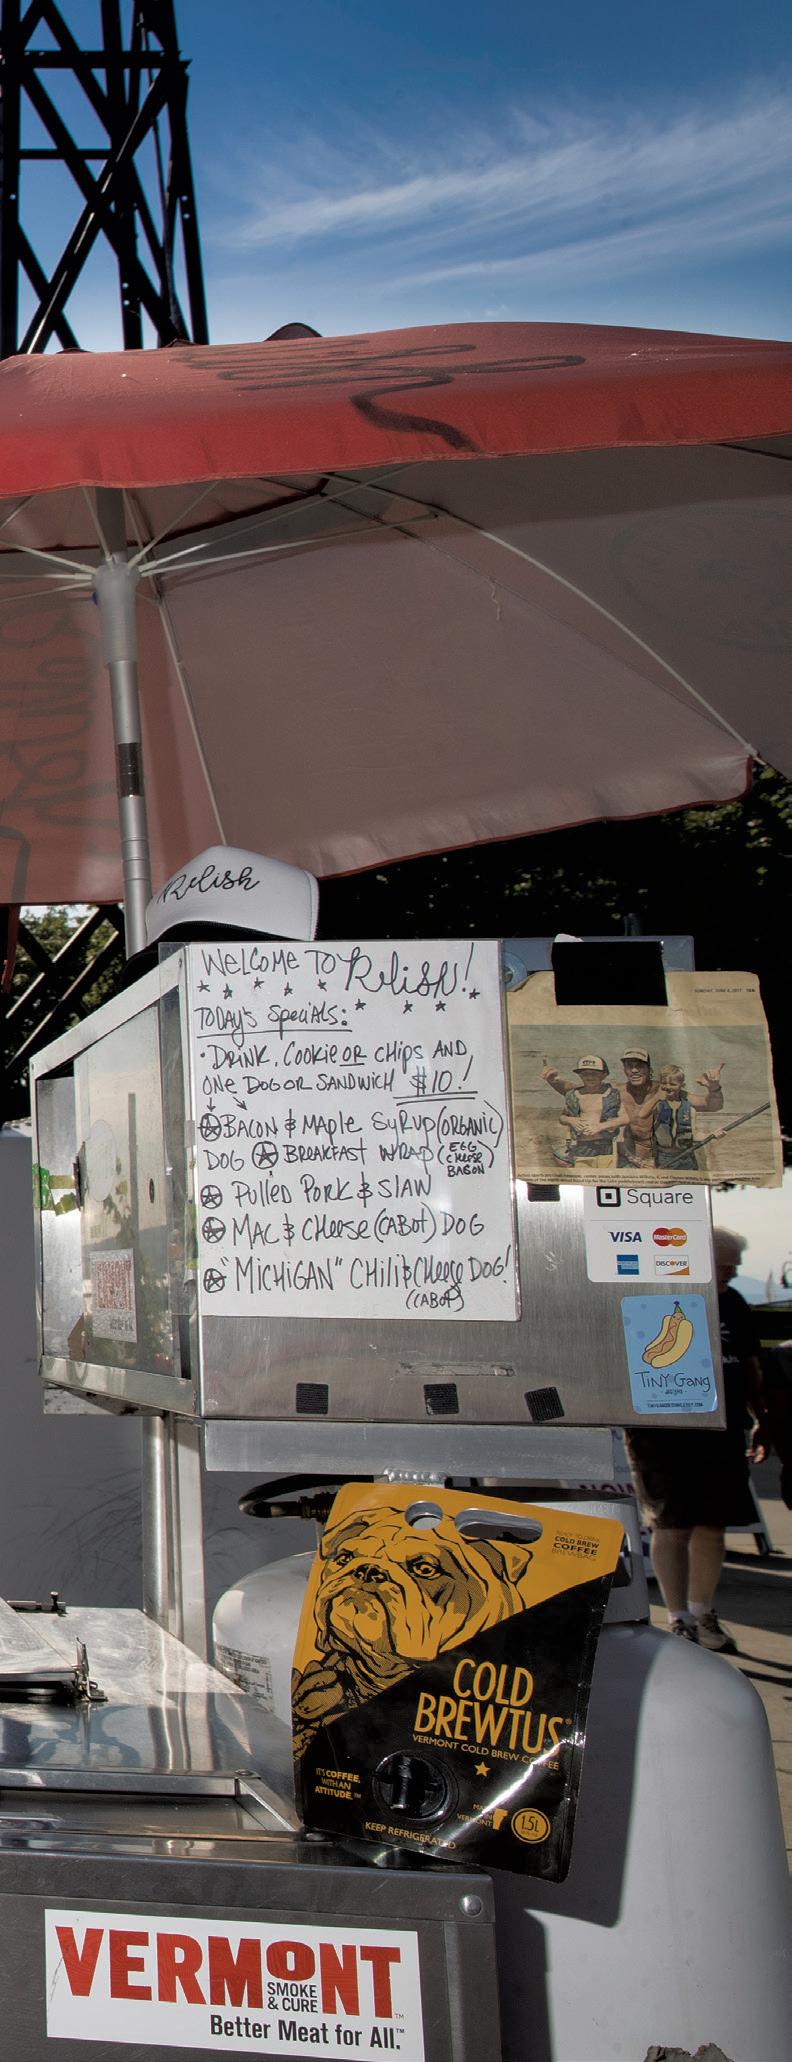 Relish
WELCOME TO Relish!
TODAY'S SPECIALS:
• DRINK, COOKIE OR CHIPS AND
ONE DOG OR SANDWICH $10!
BACON & MAPLE SYRUP (ORGANIC)
DOG BREAKFAST WRAP (EGG CHEESE BACON)
PULLED PORK & SLAW
MAC & CHEESE (CABOT) DOG
"MICHIGAN" CHILI & CHEESE DOG!
(CABOT)
SUNDAY, JUNE 4, 2017
Square
VISA MasterCard
DISCOVER
TINY Gang
VERMONT
READY TO DRINK
COLD BREW
COFFEE
BREWBAG
COLD
BREWTUS
VERMONT COLD BREW COFFEE
IT'S COFFEE,
WITH AN
ATTITUDE.™
VERMONT
1.5L
KEEP REFRIGERATED
VERMONT™
SMOKE
& CURE
Better Meat for All.™